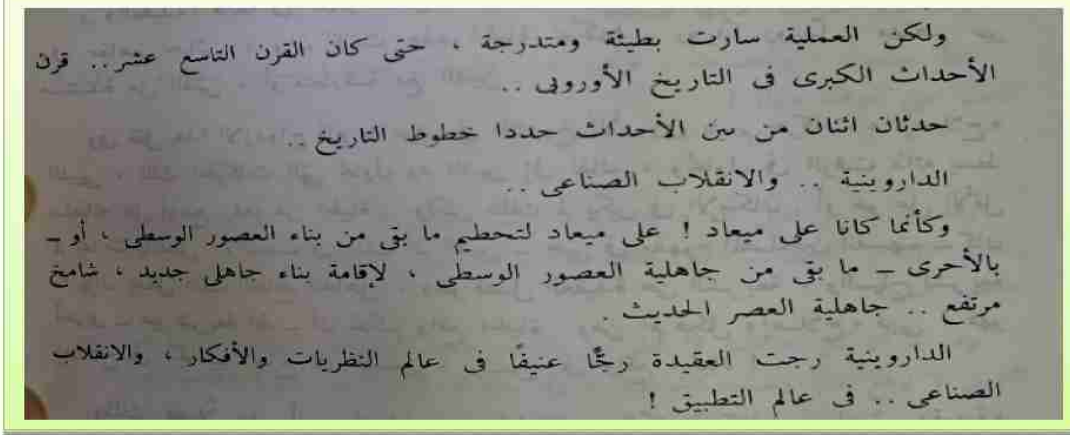 ولكن العملية سارت بطيئة ومتدرجة ، حتى كان القرن التاسع عشر .. قرن
الأحداث الكبرى فى التاريخ الأوروبى ..
حدثان اثنان من بين الأحداث حددا خطوط التاريخ ..
الداروينية .. والانقلاب الصناعى ..
وكأنما كانا على ميعاد ! على ميعاد لتحطيم ما بقى من بناء العصور الوسطى ، أو –
بالأحرى – ما بقى من جاهلية العصور الوسطى ، لإقامة بناء جاهلى جديد ، شامخ
مرتفع .. جاهلية العصر الحديث .
الداروينية رجت العقيدة رجًّا عنيفًا فى عالم النظريات والأفكار ، والانقلاب
الصناعى .. فى عالم التطبيق !